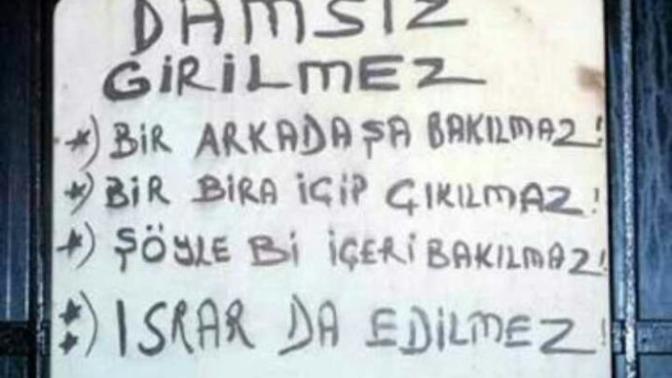 DAMSIZ
GİRİLMEZ
*) BİR ARKADAŞA BAKILMAZ!
*) BİR BİRA İÇİP ÇIKILMAZ!
*) ŞÖYLE Bİ İÇERİ BAKILMAZ!
**) ISRAR DA EDİLMEZ!